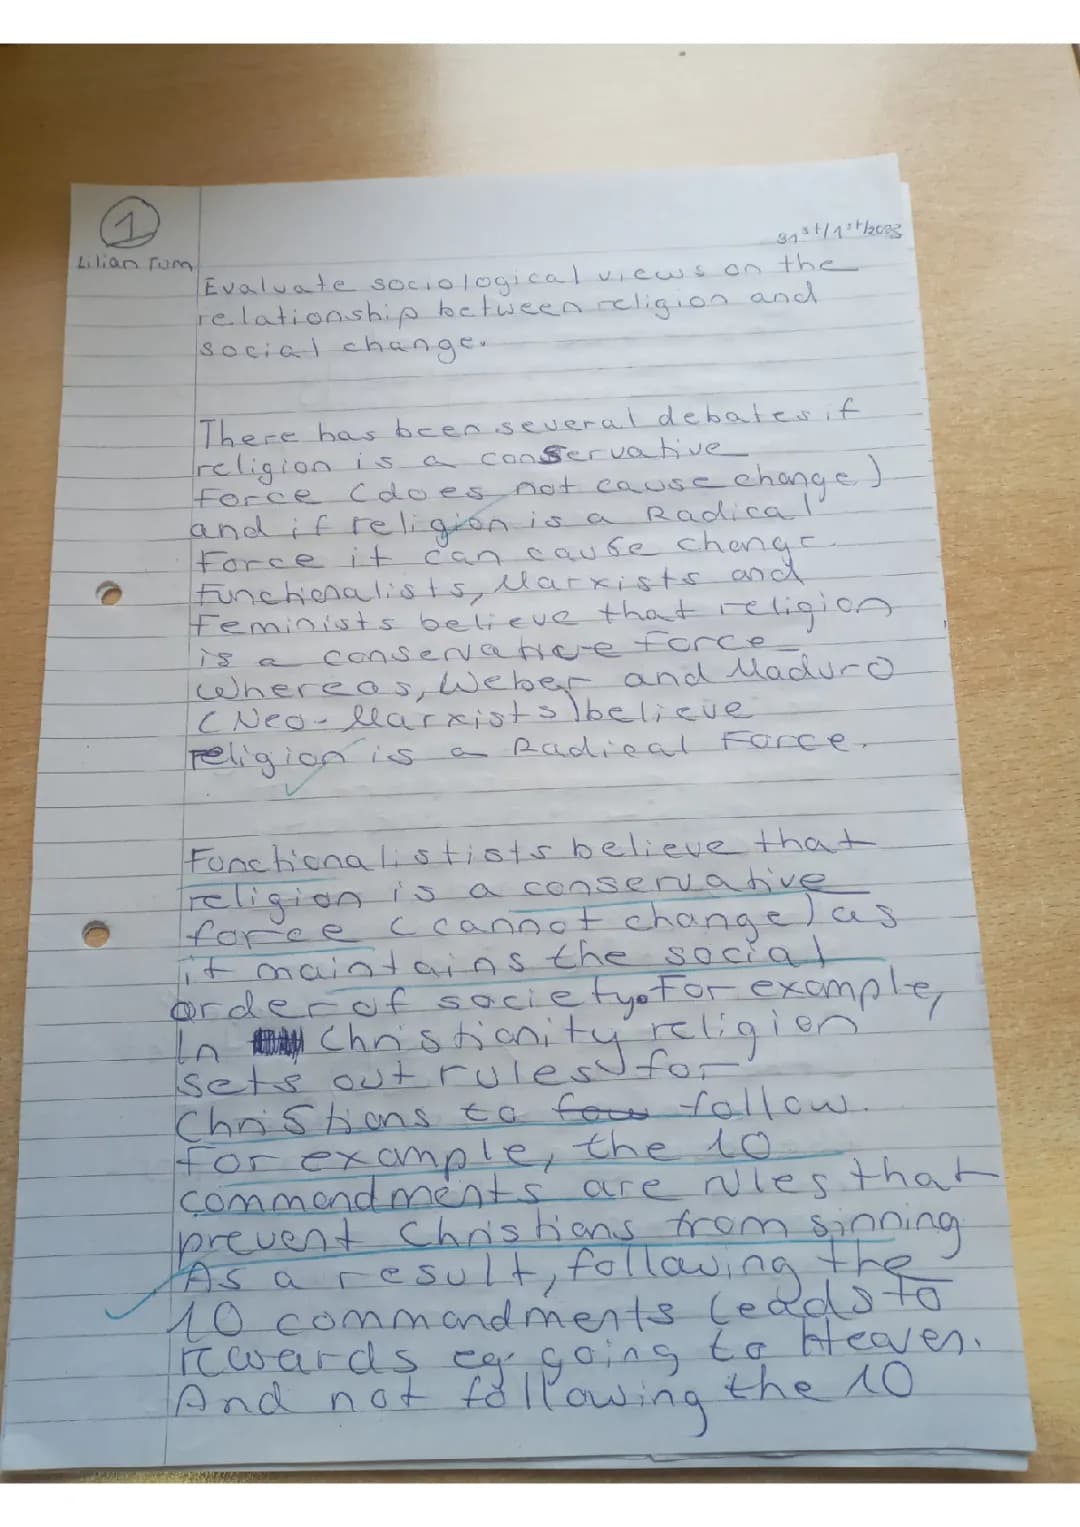 1
Lilian Tum
31st/1st/2023
Evaluate sociological views on the
relationship between religion and
social change.
There has been several debates if
religion is a conservative
force (does not cause change)
and if religion is a Radical
Force it can cause change.
Functionalists, Marxists and
Feminists believe that religion
is a conservative force
Whereas, Weber and Maduro
(Neo-Marxists) believe
religion is a Radical Force.
Functionalistists believe that
religion is a conservative
force (cannot change) as
it maintains the social
order of society. For example,
In Christianity religion
sets out rules for
Christians to follow.
For example, the 10
commandments are rules that
prevent Christians from sinning
As a result, following the
10 commandments leads to
rewards eg. going to Heaven.
And not following the 10